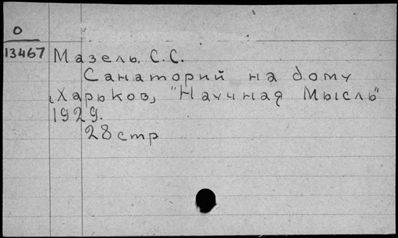 О
13467
Мазель. С.С.
Санаторий на дому
[Харьков] "Научная Мысль"
1929.
28 стр